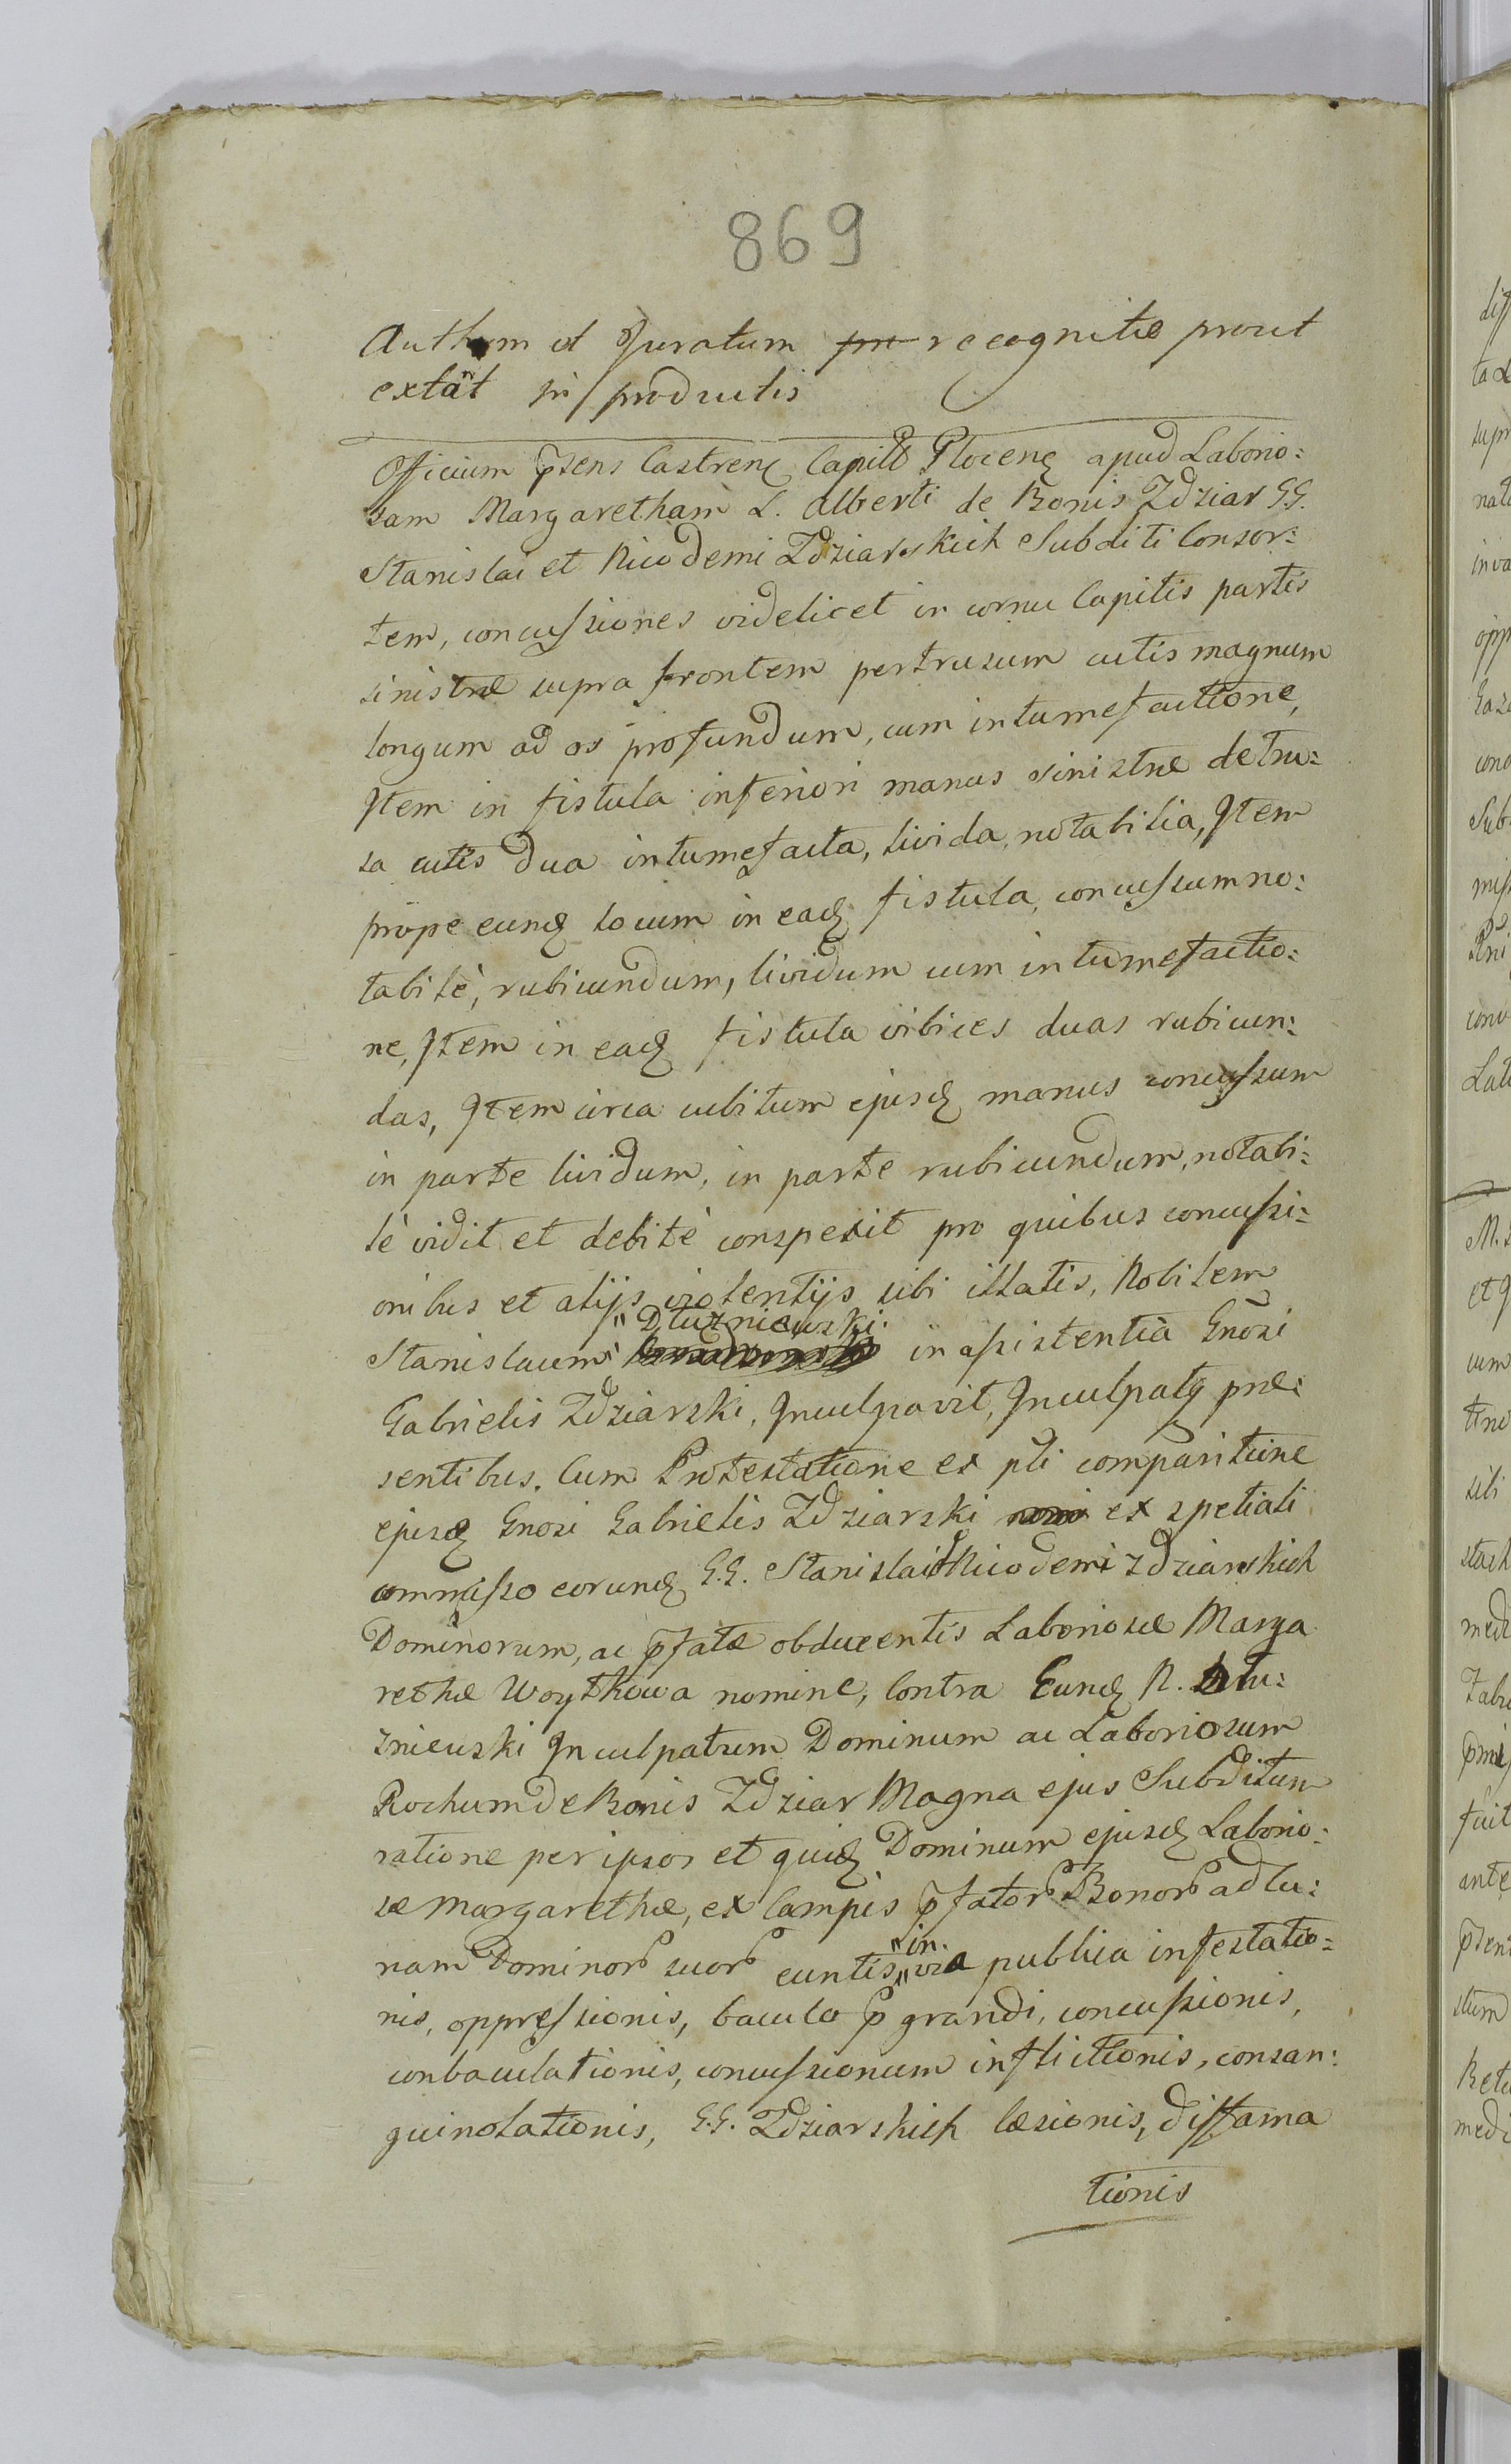 869
Authum et Juratum recognitæ prout
extãt in productis
Officium p̃sens Castrenꝫ Capitł Plocenꝫ apud Laborio:
sam Margaretham L. Alberti de Bonis Zdziar G.G.
Stanislai et Nicodemi Zdziarskich Subditi Consor:
tem, concussiones videlicet in cornu Capitis partis
sinistræ supra frontem pertrusum cutis magnum
longum ad os profundum, cum intumefactione,
Item in fistula inferiori manus sinistræ detru:
sa cutis dua intumefacta, livida, notabilia, Item
prope eunđ locum in eađ fistula, concussum no:
tabilè, rubicundum, lividum cum intumefactio:
ne, Item in eađ fistula vibices duas rubicun:
das, Item circa cubitum ejusđ manus concussum
in parte lividum, in parte rubicundum, notabi:
lè vidit et debitè conspexit pro quibus concussi:
onibus et alijs violentijs sibi illatis, Nobilem
Stanislaum "Dłużniewski in assistentia Gnõsi
Gabrielis Zdziarski, Inculpavit, Inculpatꝫ præ:
sentibus. Cum Protestatione ex płi comparitione
ejusđ Gnosi Gabrielis Zdziarski ex spetiali
commisso eorunđ G.G. Stanislai et Nicodemi Zdziarskich
Dominorum, ac p̃fatæ obducentis Laboriosæ Marga
rethæ Woytkowa nomine, Contra Eunđ N. Dłu:
żniewski Inculpatum Dominum ac Laboriosum
Rochum de Bonis Zdziar Magna ejus Subditum
ratione per ipsos et quiđ Dominum ejusđ Laborio:
sæ Margarethæ, ex Campis p̃fator̃ Bonor̃ ad Cu:
riam Dominor̃ suor̃ euntis "in" via publica infestatio:
nis, oppressionis, baculo p̃grandi, concussionis,
conbaculationis, concussionum inflictionis, consan:
guinolationis, G.G. Zdziarskich læsionis, diffama
tionis